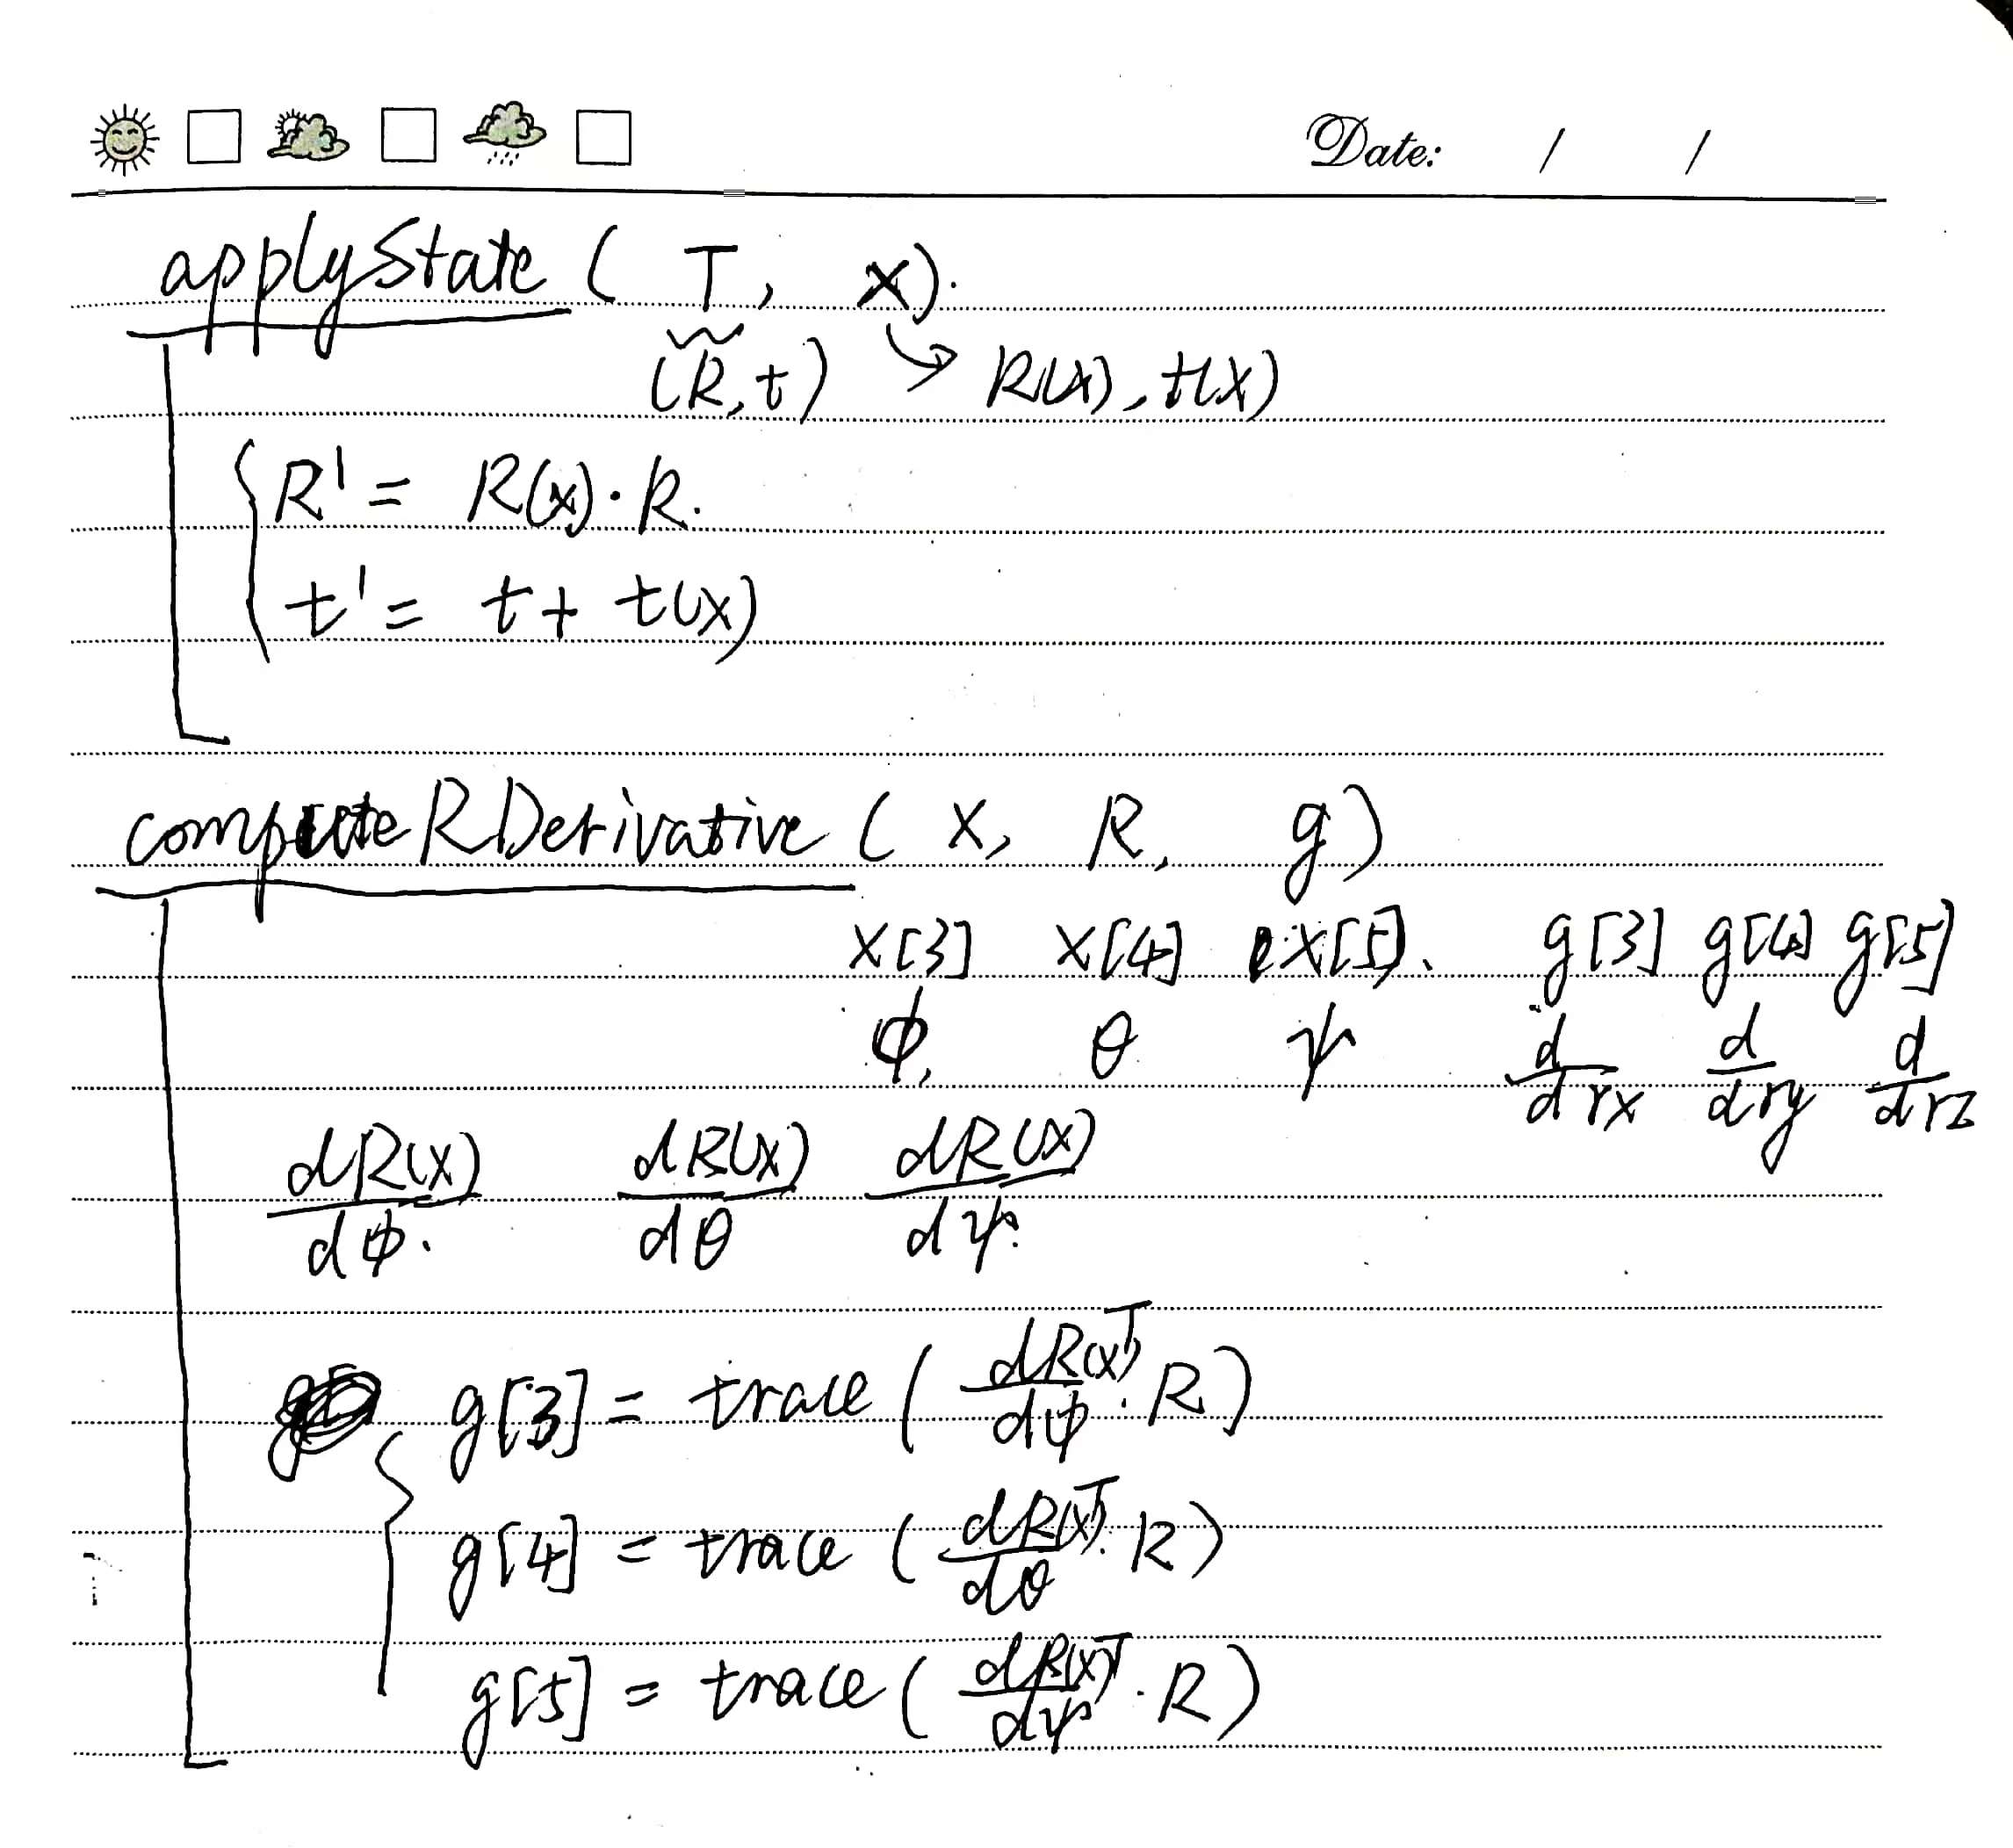 Date: / /
applyState ( T, x).
(R, t) → R(x), t(x)
R' = R(x)·R.
t' = t + t(x)
compute RDerivative ( x, R, g)
x[3] x[4] x[5]. g[3] g[4] g[5]
ϕ, θ ψ d/drx d/dry d/drz
dR(x)/dϕ. dR(x)/dθ dR(x)/dψ.
g[3] = trace ( dR(x)ᵀ/dϕ · R )
g[4] = trace ( dR(x)ᵀ/dθ · R )
g[5] = trace ( dR(x)ᵀ/dψ · R )